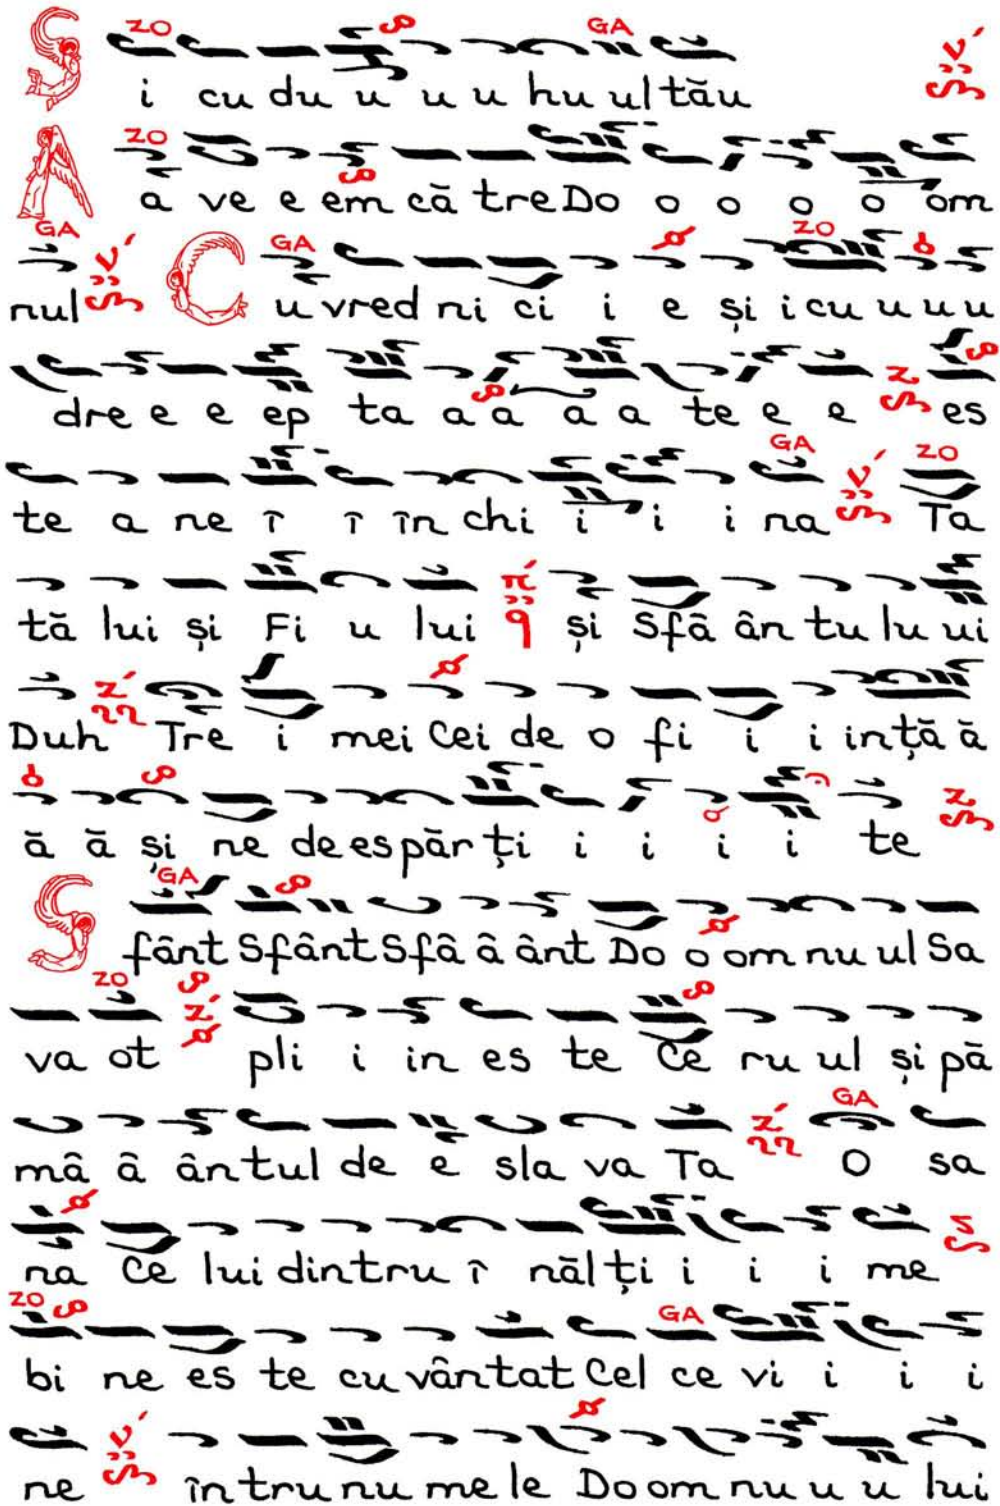 ZO GA
S i cu du u u u hu ul tău
ZO
A a ve e em că tre Do o o o o om
GA GA ZO
nul C u vred ni ci i e și i cu u u u
dre e e ep ta a a a a te e e es
GA ZO
te a ne î î în chi i i i na Ta
tă lui și Fi u lui și Sfâ ân tu lu ui
Duh Tre i mei Cei de o fi i i ință ă
ă ă și ne de es păr ți i i i i te
GA
S fânt Sfânt Sfâ â ânt Do o om nu ul Sa
ZO
va ot pli i in es te Ce ru ul și pă
GA
mâ â ântul de e sla va Ta O sa
na Ce lui dintru î năl ți i i i me
ZO GA
bi ne es te cu vântat Cel ce vi i i i
ne în tru nu me le Do om nu u u lui